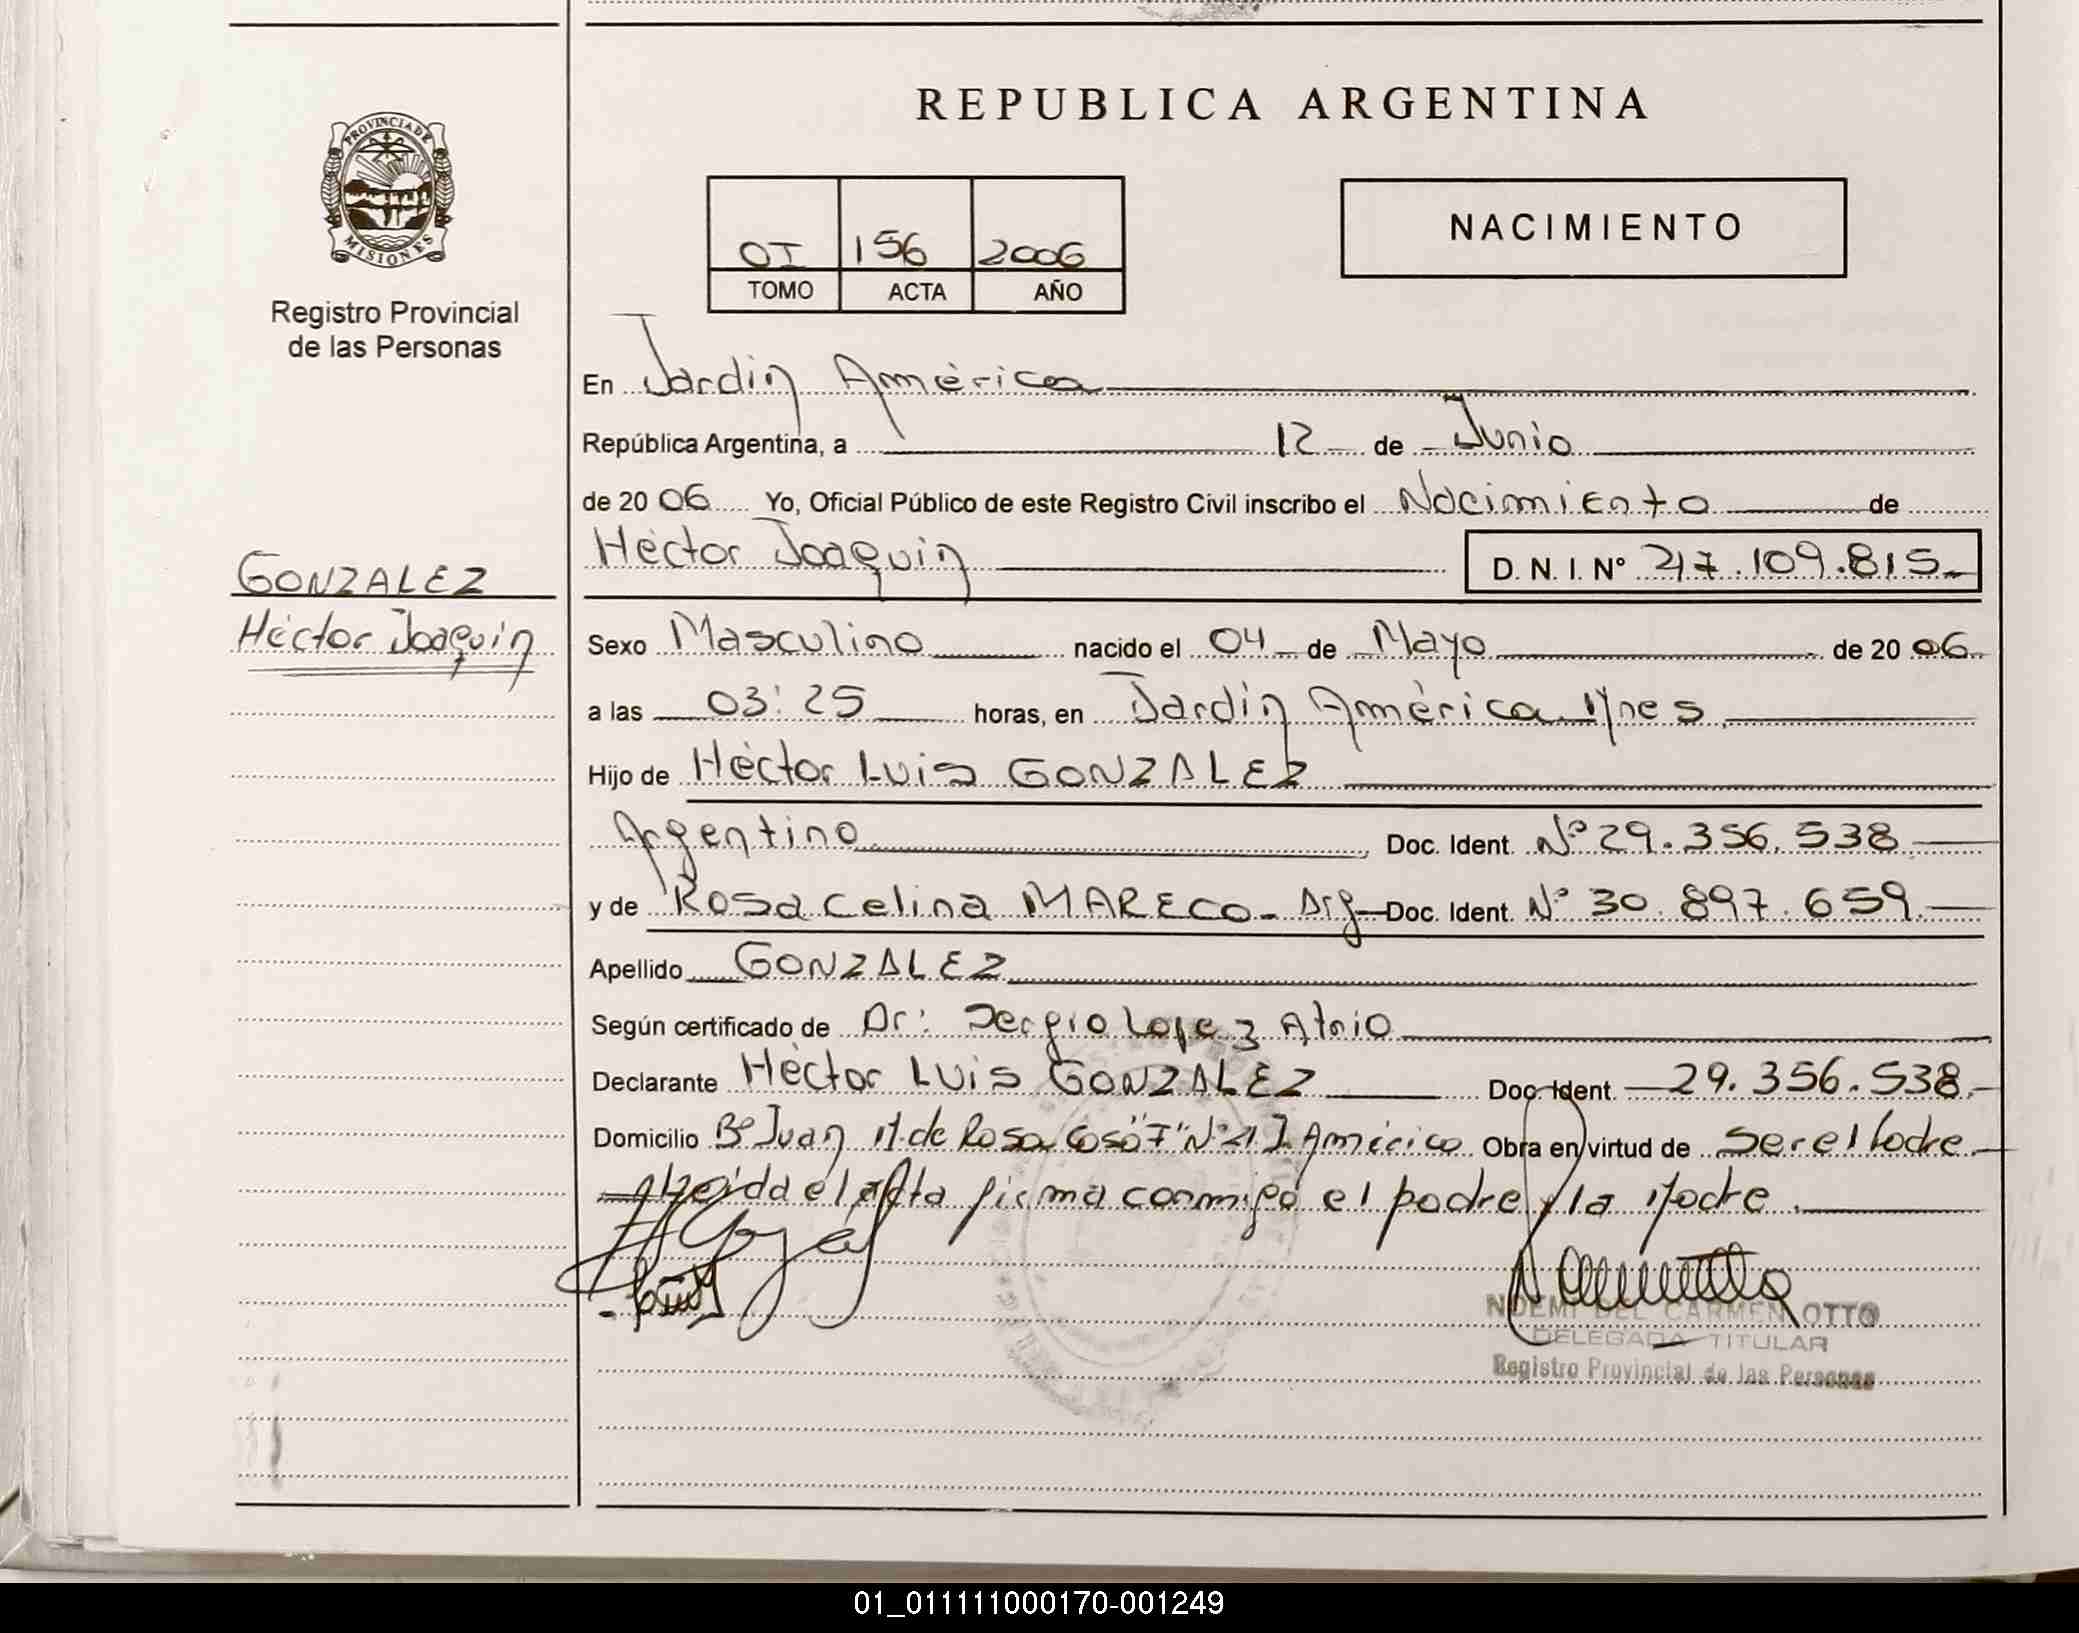 PROVINCIA DE
MISIONES
Registro Provincial
de las Personas
GONZALEZ
Héctor Joaquin
REPUBLICA ARGENTINA
OI 156 2006
TOMO ACTA AÑO
NACIMIENTO
En Jardin América
República Argentina, a 12 de Junio
de 20 06 Yo, Oficial Público de este Registro Civil inscribo el Nacimiento de
Héctor Joaquin D. N. I. N° 47.109.815
Sexo Masculino nacido el 04 de Mayo de 20 06
a las 03:25 horas, en Jardin América Mnes
Hijo de Héctor Luis GONZALEZ
Argentino Doc. Ident. N° 29.356.538
y de Rosa Celina MARECO - Arg Doc. Ident. N° 30.897.659
Apellido GONZALEZ
Según certificado de Dr: Sergio Lopez
Declarante Héctor Luis GONZALEZ Doc. Ident. 29.356.538
Domicilio B° Juan M. de Rosa Casa "F" N° J. América Obra en virtud de Ser el Padre
el Acta firma conmigo el padre y la Madre
NOEMI DEL CARMEN OTTO
DELEGADA TITULAR
Registro Provincial de las Personas
01_011111000170-001249